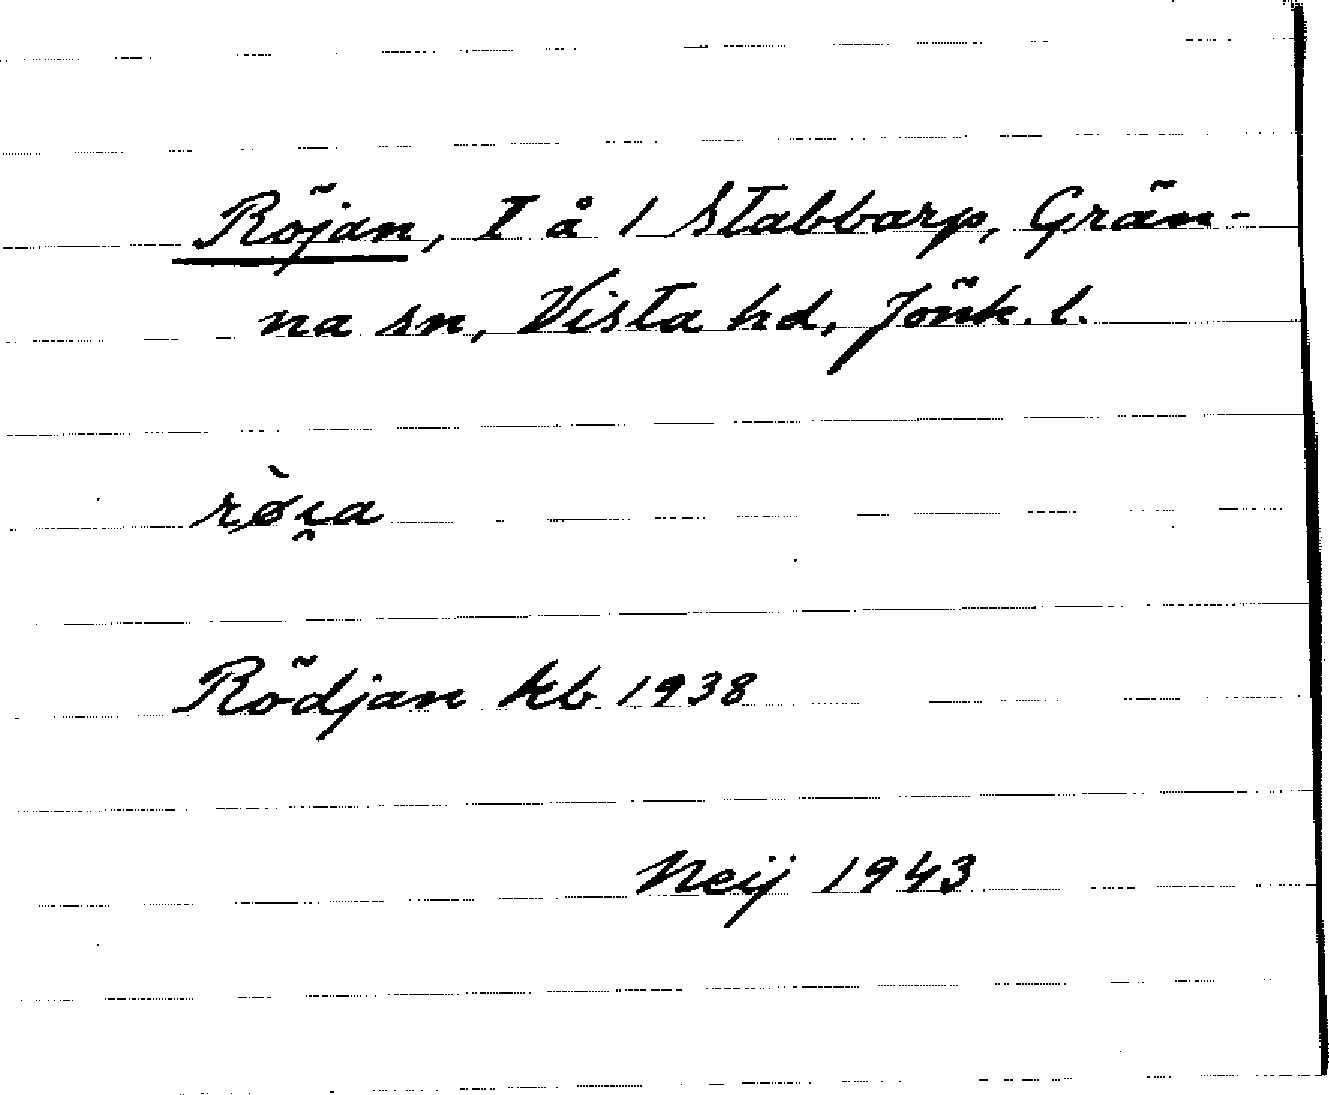 Röjan, I å 1 Stabbarp, Grän-
na sn, Vista hd, Jönk. l.
rø̀i̯a
Rödjan kb 1938
Neij 1943